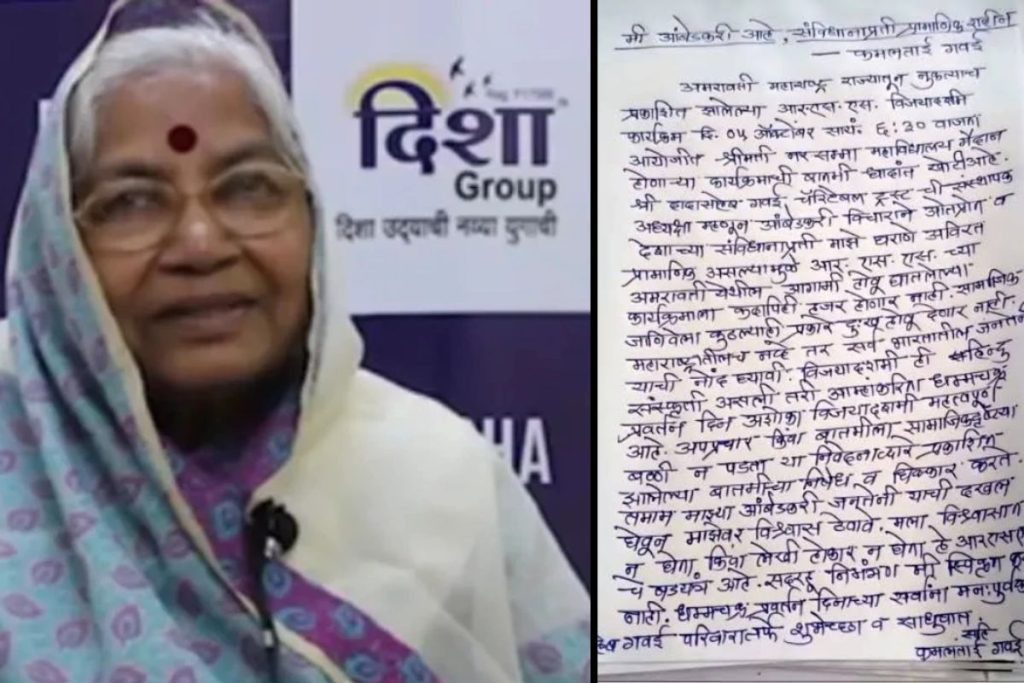 Reg. 717508
दिशा
Group
दिशा उद्याची नव्या युगाची
HA
मी आंबेडकरी आहे, संविधानाप्रती प्रामाणिक राहीन
— कमलताई गवई
अमरावती महाराष्ट्र राज्यातून नुकत्याच
प्रकाशित झालेल्या आर.एस.एस. विजयादशमी
कार्यक्रम दि. ०५ ऑक्टोंबर सायं. ६:३० वाजता
आयोजीत श्रीमती नरसम्मा महाविद्यालय मैदान
होणाऱ्या कार्यक्रमाची बातमी धादांत खोटी आहे.
श्री दादासाहेब गवई चॅरिटेबल ट्रस्ट ची संस्थापक
अध्यक्षा म्हणून आंबेडकरी विचाराने ओतप्रोत व
देशाच्या संविधानाप्रती माझे घराणे अविरत
प्रामाणिक असल्यामुळे आर. एस. एस. च्या
अमरावती येथील आगामी होवू घातलेल्या
कार्यक्रमाला कदापिही हजर होणार नाही. सामाजिक
जाणिवेला कुठल्याही प्रकार दुःख होवू देणार नाही.
महाराष्ट्रातीलच नव्हे तर सर्व भारतातील जनतेने
याची नोंद घ्यावी. विजयादशमी ही हिन्दु
संस्कृती असली तरी आम्हाकरिता धम्मचक्र
प्रवर्तन दिन अशोका विजयादशमी महत्वपूर्ण
आहे. अपप्रचार किंवा बातमीला सामाजिकदृष्ट्या
बळी न पडता या निवेदनाव्दारे प्रकाशित
झालेल्या बातमीच्या निषेध व धिक्कार करते.
तमाम माझ्या आंबेडकरी जनतेनी याची दखल
घेवून माझेवर विश्वास ठेवावे. मला विश्वासात
न घेता किंवा लेखी होकार न घेता हे आरएसएस
चे षडयंत्र आहे. सदरहू निमंत्रण मी स्विकृत केले
नाही. धम्मचक्र प्रवर्तन दिनाच्या सर्वांना मनःपुर्वक
गवई परिवारातर्फे शुभेच्छा व साधुवाद
कमलताई गवई